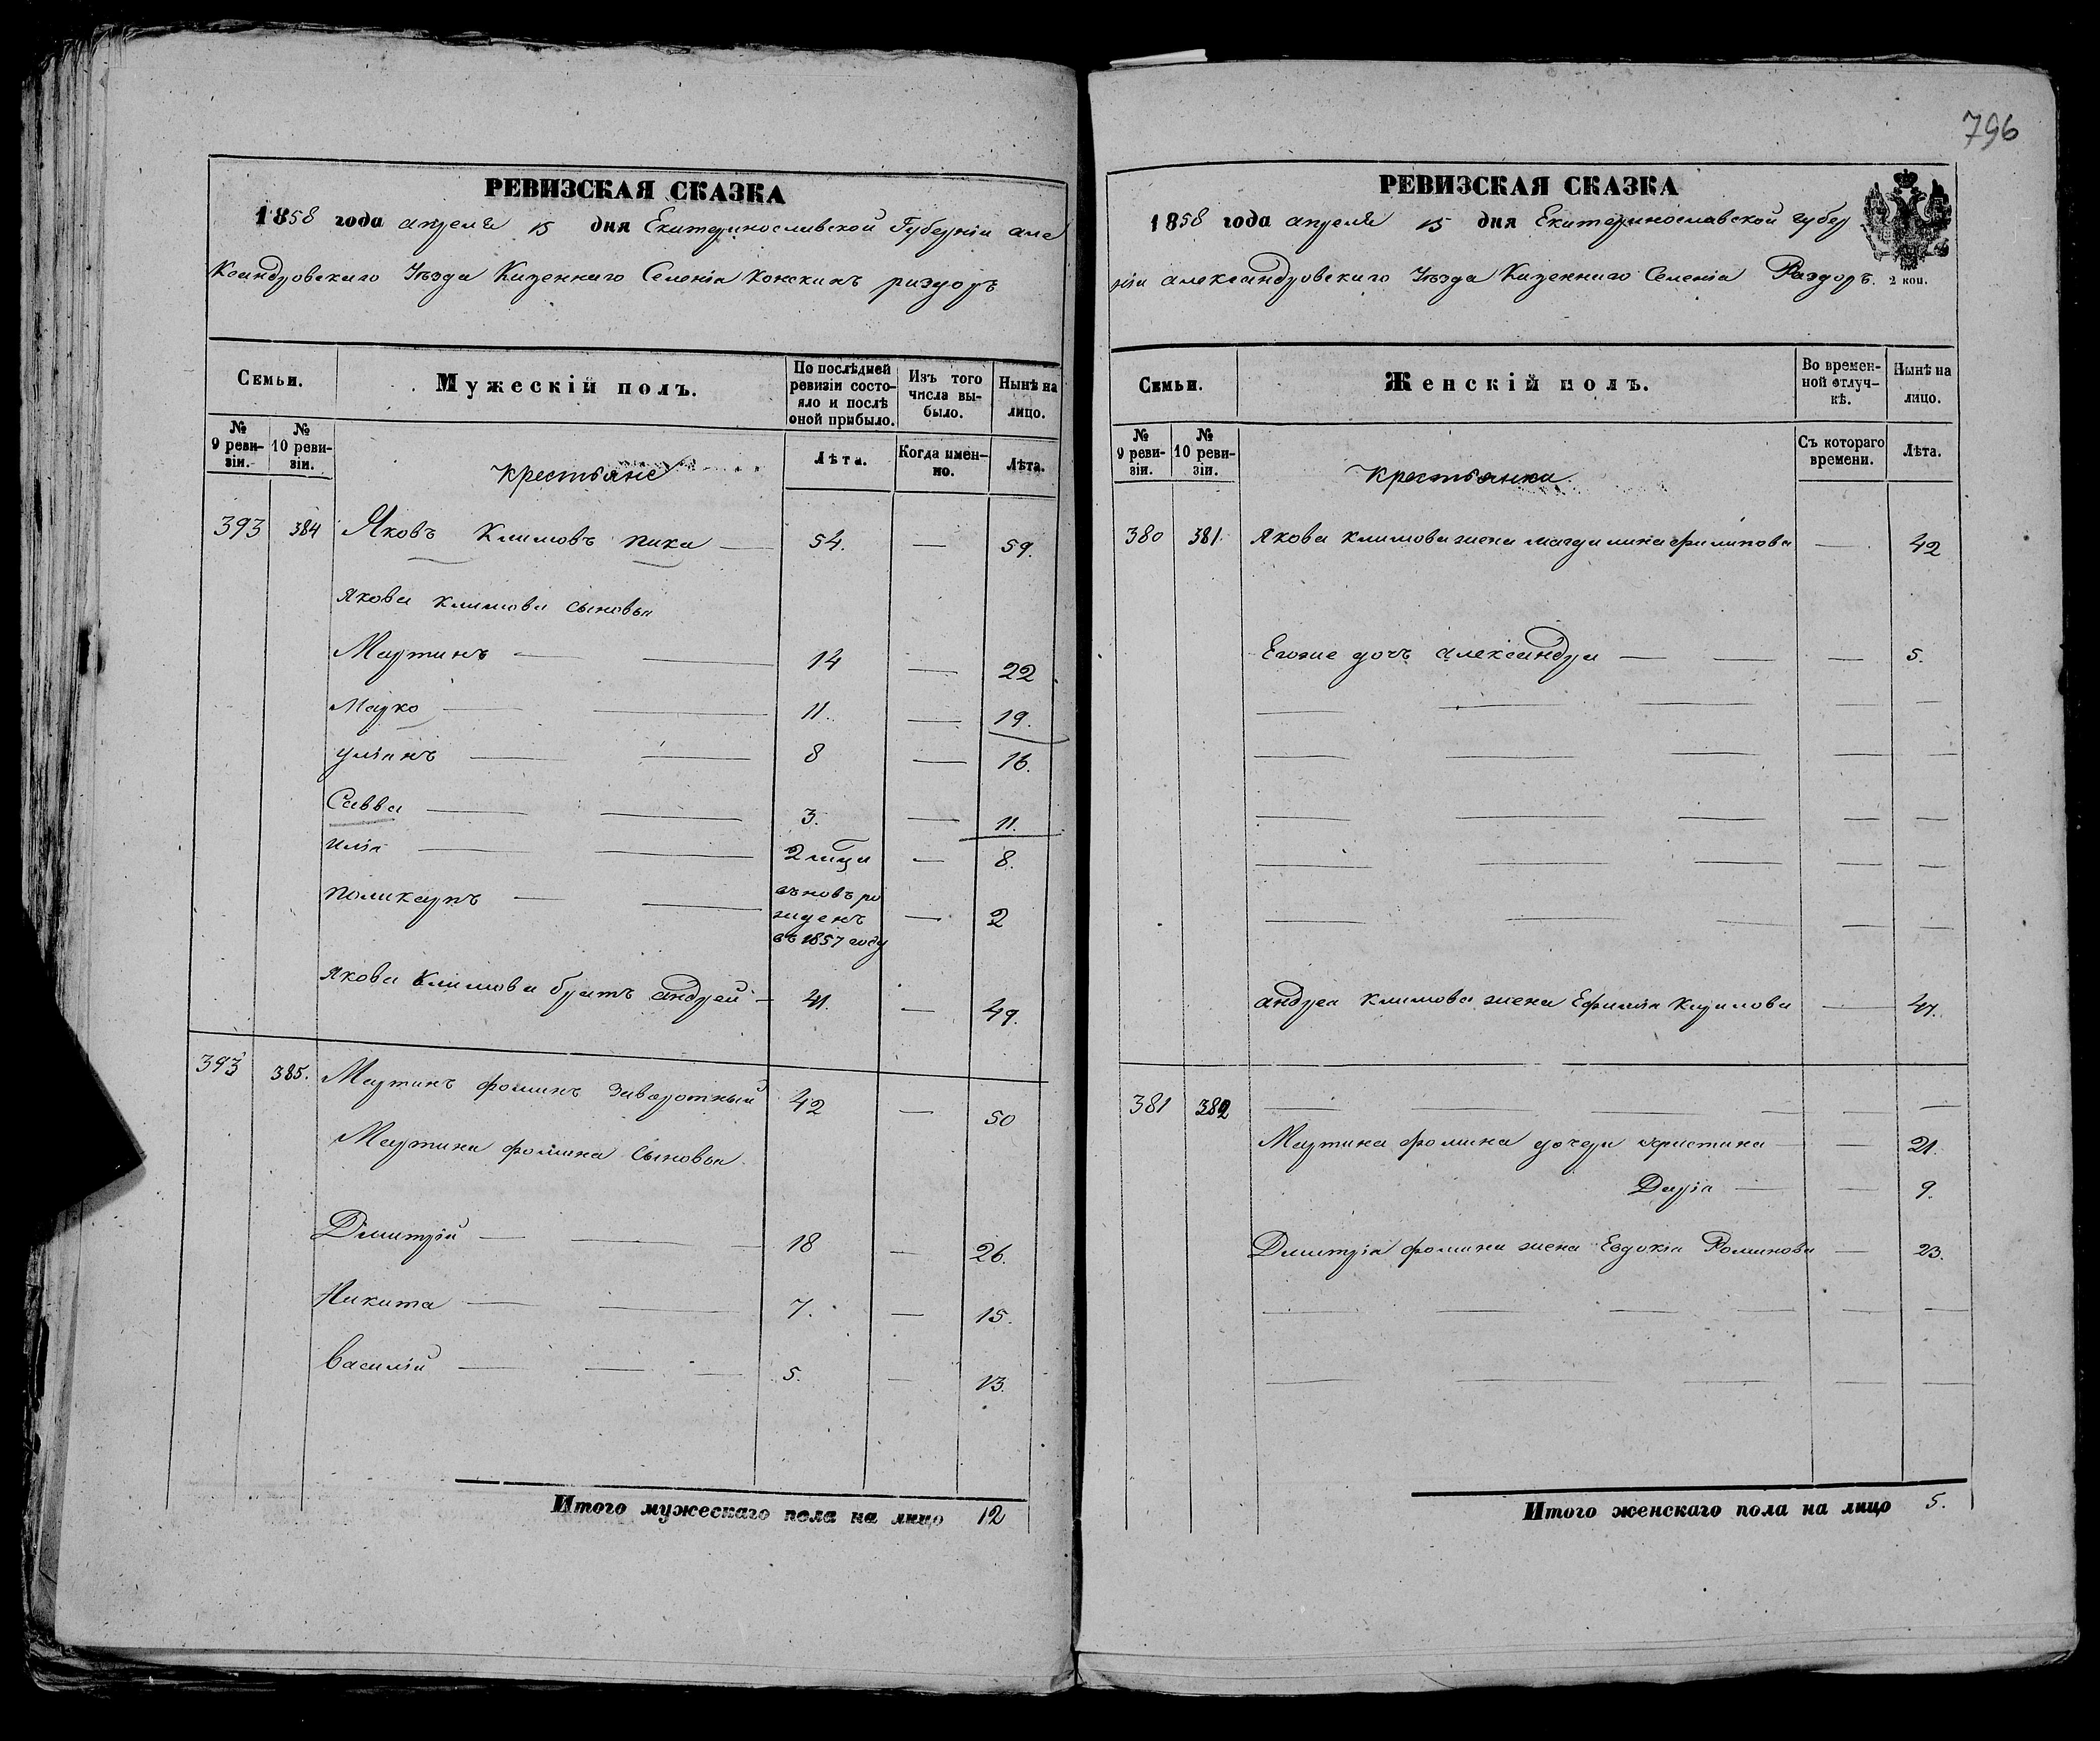 796
РЕВИЗСКАЯ СКАЗКА
1858 года апреля 15 дня Екатеринославской Губерніи але
ксандровскаго Уѣзда Казеннаго Селенія Конскихъ раздоръ
Семьи.
Мужескій полъ.
По послѣдней ревизіи состояло и послѣ оной прибыло.
Изъ того числа выбыло.
Нынѣ на лицо.
№ 9 ревизіи.
№ 10 ревизіи.
Крестьяне
Лѣта.
Когда именно.
Лѣта.
393 384 Яковъ Климовъ пика — 54. — 59.
Якова климова сыновья
Мартинъ — — 14 — 22
Марко — — 11. — 19.
уліянъ — — 8 — 16.
Савва — — 3. — 11.
илія — — 2 мца — 8.
поликарпъ — — вновъ рожденъ въ 1857 году — 2
Якова Климова братъ андрей — 41. — 49.
393 385. Мартинъ фоминъ Заворотный 42 — 50
Мартина фомина Сыновья
Дмитрій — — 18 — 26.
Никита — — 7. — 15.
Василій — — — 5. — 13.
Итого мужескаго пола на лицо 12
РЕВИЗСКАЯ СКАЗКА
1858 года апреля 15 дня Екатеринославской губер
ніи александровскаго Уѣзда Казеннаго Селенія Раздоръ.
2 коп.
Семьи.
Женскій полъ.
Во временной отлучкѣ.
Нынѣ на лицо.
№ 9 ревизіи.
№ 10 ревизіи.
Крестьянки.
Съ котораго времени.
Лѣта.
380 381. Якова климова жена магдалина филипова — 42
Егоже дочь александра — — — 5.
андрея климова жена Ефимія Кирилова — 47.
381 382
Мартина фомина дочери христина — — 21.
Дарія — — 9.
Дмитрія фомина жена Евдокія Романова — 23.
Итого женскаго пола на лицо 5.